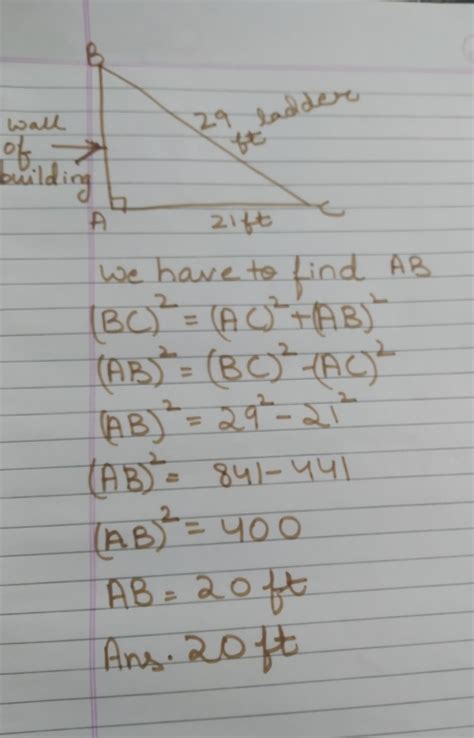 B
29 ladder
ft
wall
of
building
A
21ft
C
we have to find AB
(BC)² = (AC)² + (AB)²
(AB)² = (BC)² - (AC)²
(AB)² = 29² - 21²
(AB)² = 841 - 441
(AB)² = 400
AB = 20 ft
Ans. 20 ft